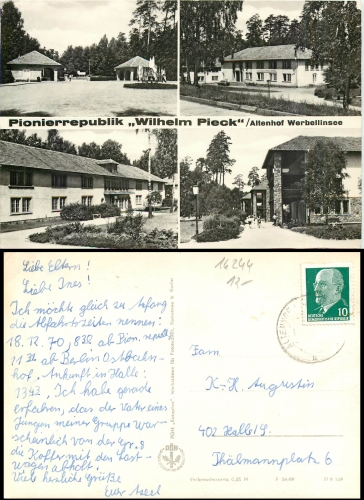 Pionierrepublik „Wilhelm Pieck“/Altenhof Werbellinsee
Liebe Eltern!
Liebe Ines!
Ich möchte gleich zu Anfang
die Abfahrtszeiten nennen:
18. 12. 70, 8 32 ab Pion. republ.
11 32 ab Berlin Ostbahn-
hof. Ankunft in Halle:
13 43. Ich habe gerade
erfahren, das der Vater eines
Jungen meiner Gruppe war-
scheinlich von der
die Koffer mit den Last-
wagen abholt.
Viele herzliche Grüße
Euer Axel
16244
12,-
DEUTSCHE
DEMOKRATISCHE REPUBLIK
10
Fam
K.-H. Augustin
402 Halle/S.
Thälmannplatz 6